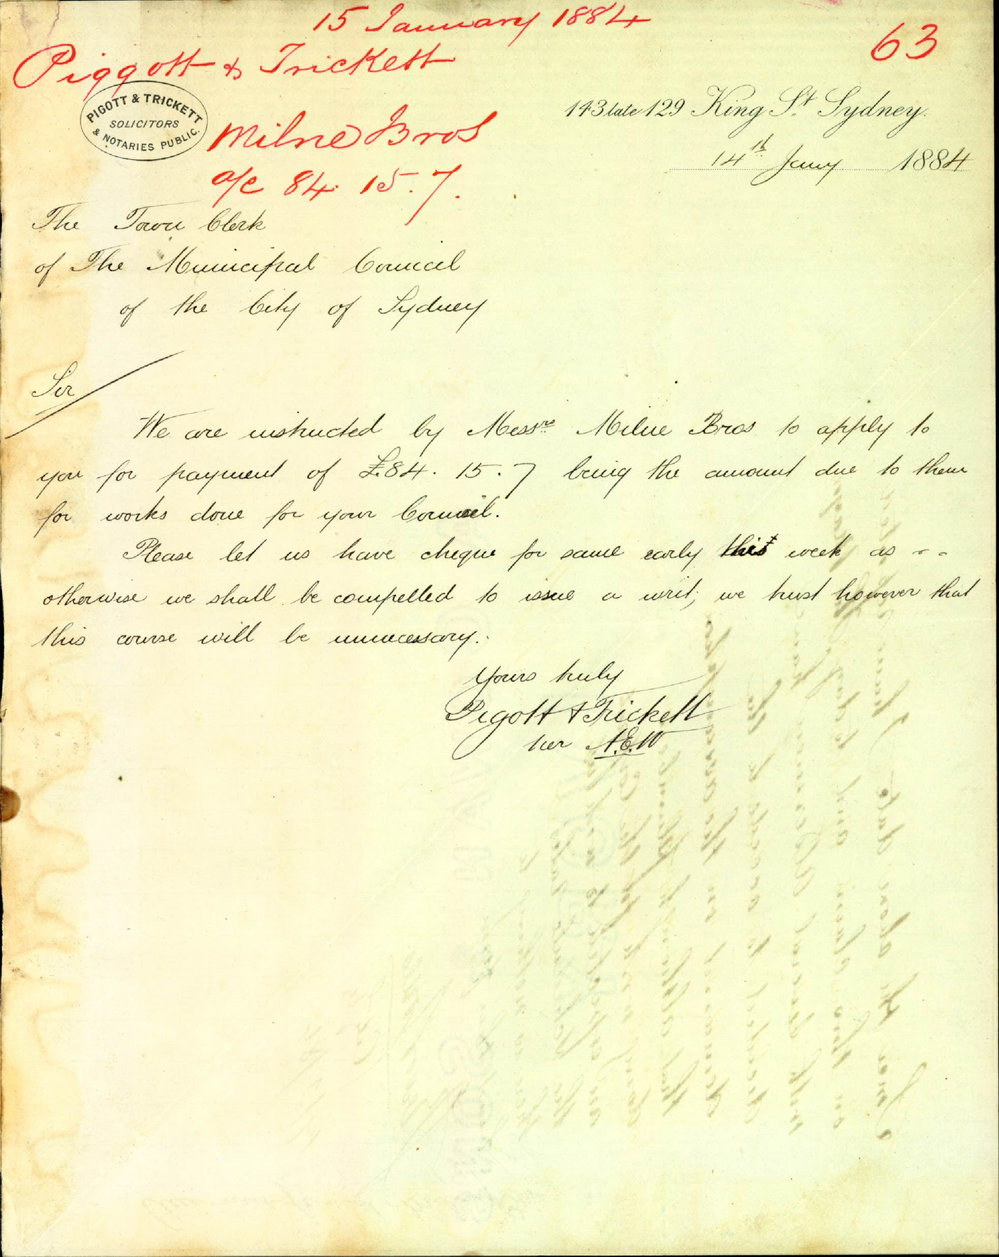 15 January 1884
63
Piggott & Trickett
PIGOTT & TRICKETT
SOLICITORS
& NOTARIES PUBLIC.
Milne Bros
a/c 84. 15. 7.
143 late 129 King St. Sydney.
14th Jany 1884
The Town Clerk
of The Municipal Council
of the City of Sydney
Sir
We are instructed by Messrs Milne Bros to apply to
you for payment of £84. 15. 7 being the amount due to them
for works done for your Council.
Please let us have cheque for same early this week as --
otherwise we shall be compelled to issue a writ; we trust however that
this course will be unnecessary.
Yours truly
Pigott & Trickett
per